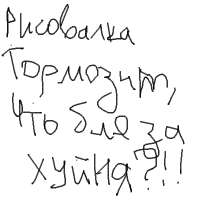 Рисовалка
Тормозит,
Что бля за
хуйня?!!!